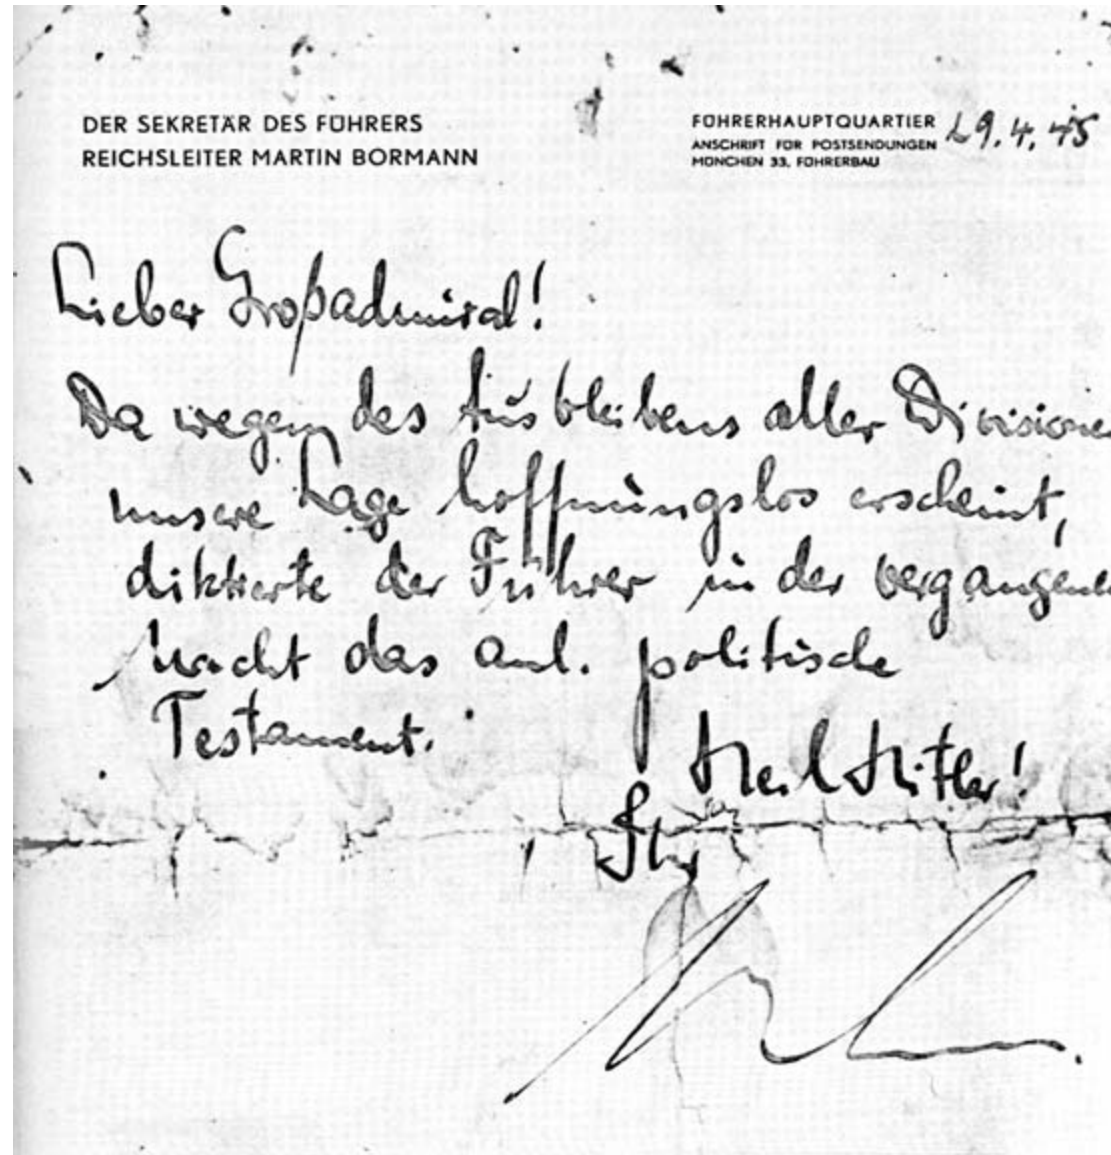 DER SEKRETÄR DES FÜHRERS
REICHSLEITER MARTIN BORMANN
FÜHRERHAUPTQUARTIER 29.4.45
ANSCHRIFT FÜR POSTSENDUNGEN
MÜNCHEN 33, FÜHRERBAU
Lieber Großadmiral!
Da wegen des Ausbleibens aller Divisionen
unsere Lage hoffnungslos erscheint,
diktierte der Führer in der vergangenen
Nacht das anl. politische
Testament.
Heil Hitler!
Ihr